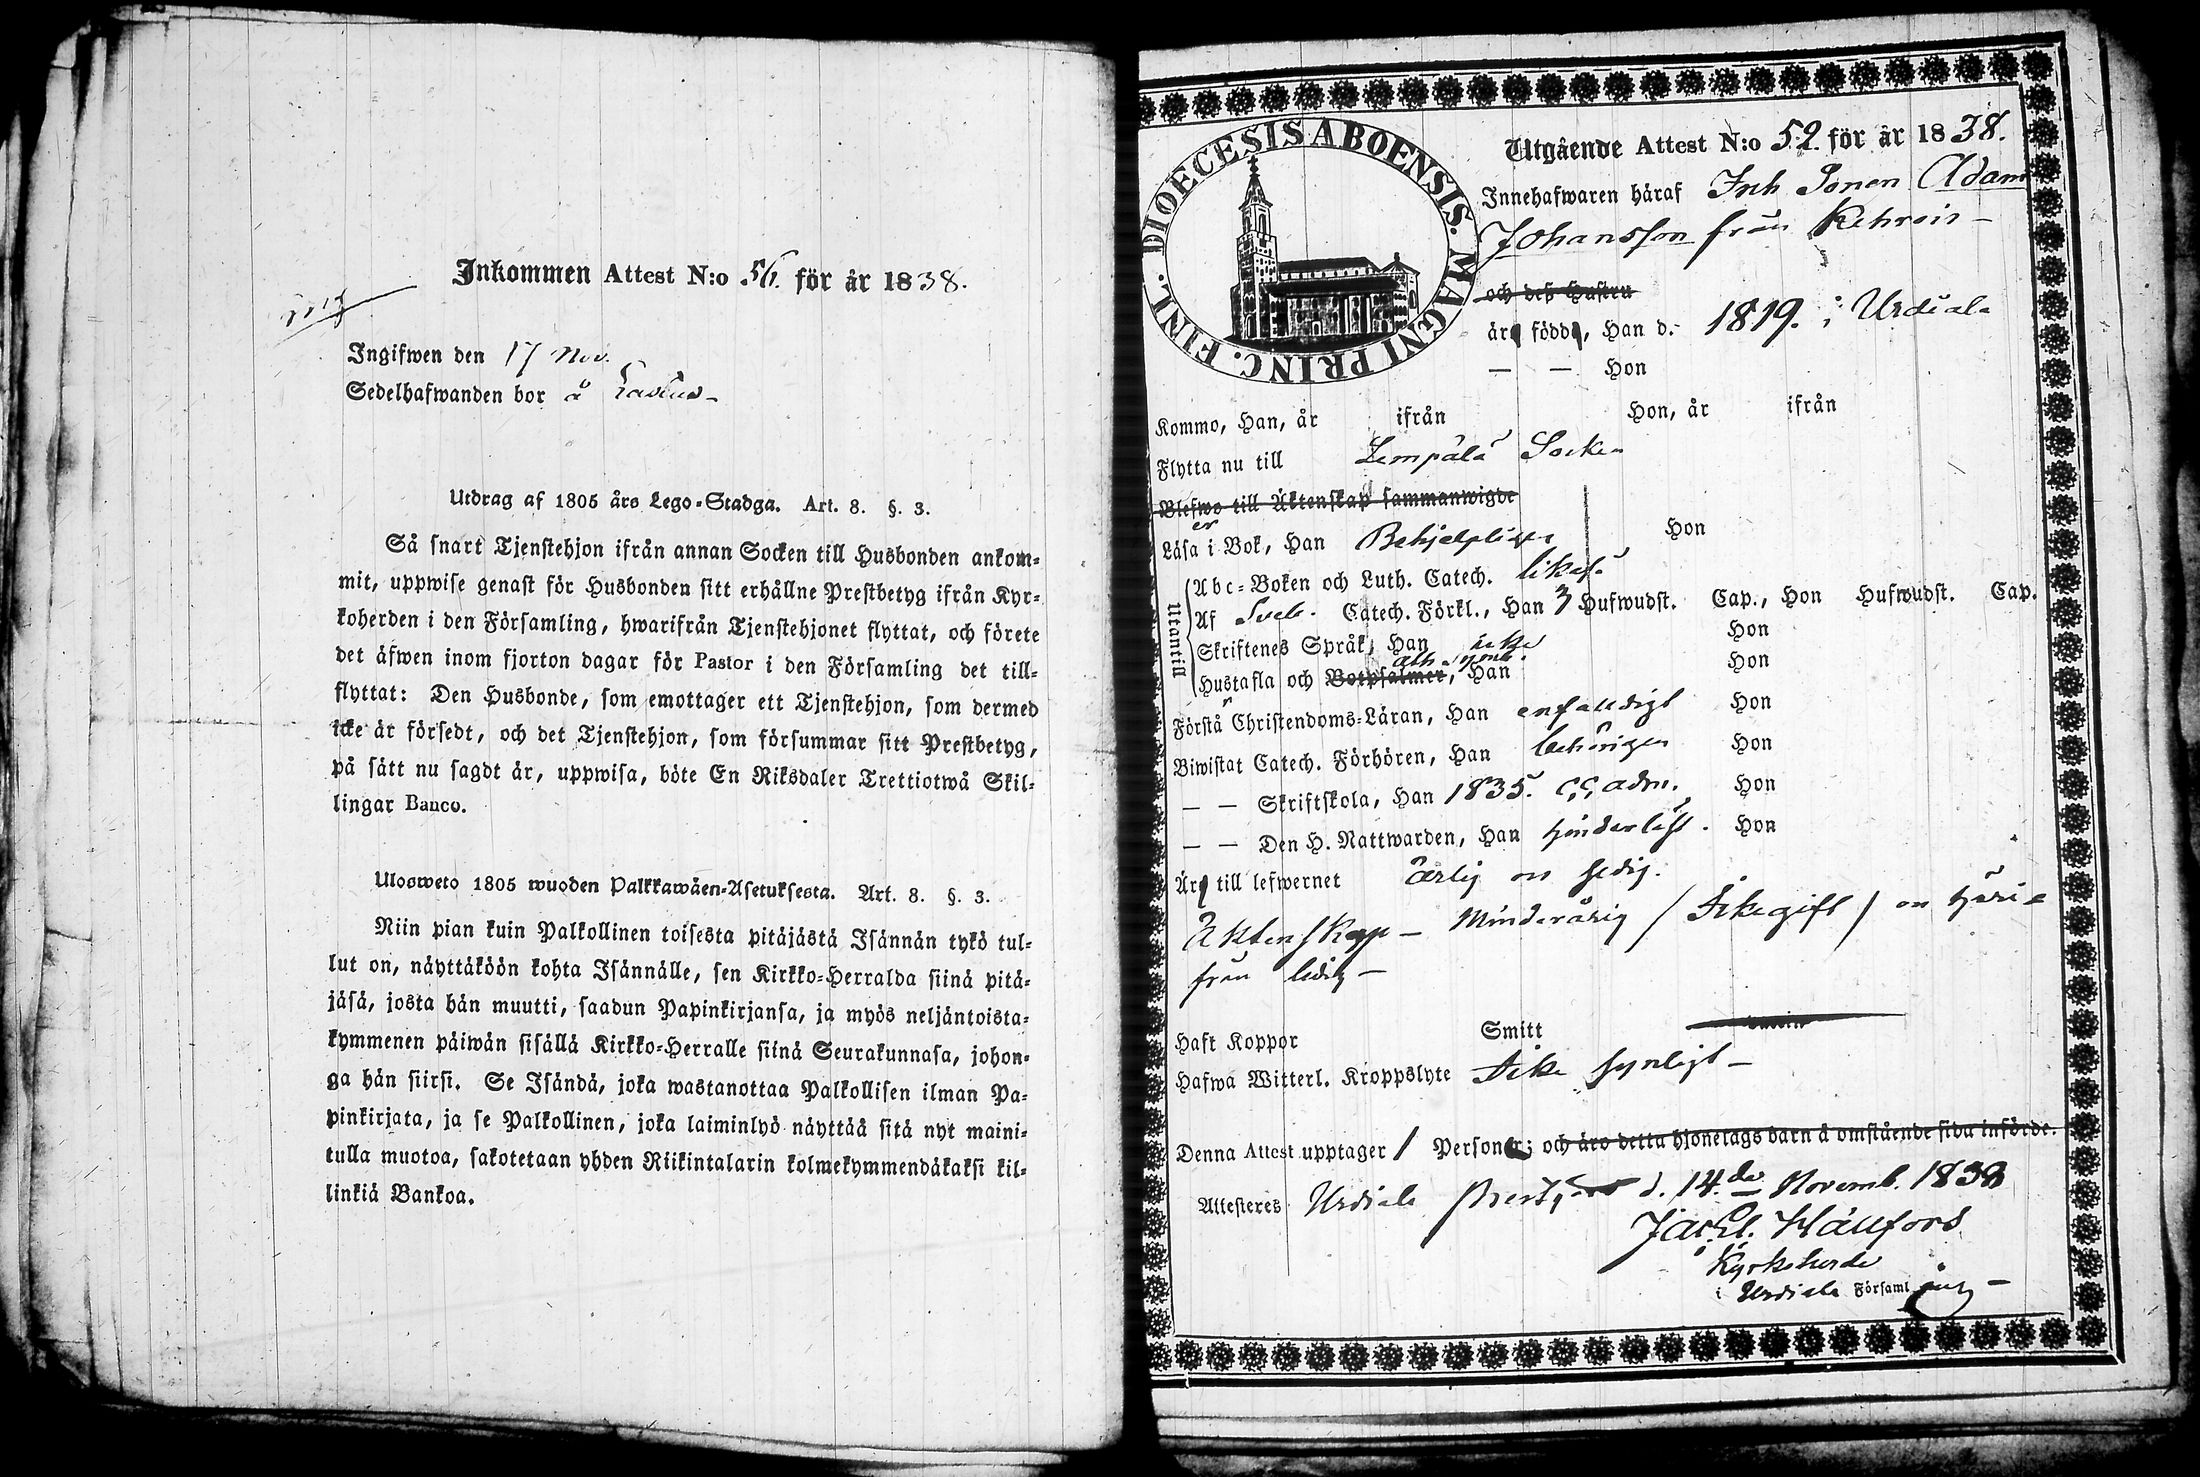 Inkommen Attest N:o 56. för år 1838.
Ingifwen den 17 Nov.
Sedelhafwanden bor å
Utdrag af 1805 års Lego-Stadga. Art. 8. §. 3.
Så snart Tjenstehjon ifrån annan Socken till Husbonden ankom-
mit, uppwise genast för Husbonden sitt erhållne Prestbetyg ifrån Kyr-
koherden i den Församling, hwarifrån Tjenstehjonet flyttat, och förete
det äfwen inom fjorton dagar för Pastor i den Församling det till-
flyttat: Den Husbonde, som emottager ett Tjenstehjon, som dermed
icke är försedt, och det Tjenstehjon, som försummar sitt Prestbetyg,
på sätt nu sagdt är, uppwisa, böte En Riksdaler Trettiotwå Skil-
lingar Banco.
Ulosweto 1805 wuoden Palkkawäen-Asetuksesta. Art. 8. §. 3.
Niin pian kuin Palkollinen toisesta pitäjästä Isännän tykö tul-
lut on, näyttäköön kohta Isännälle, sen Kirkko-Herralda siinä pitä-
jäsä, josta hän muutti, saadun Papinkirjansa, ja myös neljäntoista-
kymmenen päiwän sisällä Kirkko-Herralle siinä Seurakunnasa, johon-
ga hän siirsi. Se Isändä, joka wastanottaa Palkollisen ilman Pa-
pinkirjata, ja se Palkollinen, joka laiminlyö näyttää sitä nyt maini-
tulla muotoa, sakotetaan yhden Riikintalarin kolmekymmendäkaksi kil-
linkiä Bankoa.
DIOECESIS ABOENSIS. MAGNI PRINC. FINL.
Utgående Attest N:o 52. för år 1838.
Innehafwaren häraf Inh Sonen Adam
Johansson från
och deß Hustru
äro födde, Han d. 1819. i Urdiala
— — Hon
Kommo, Han, år ifrån Hon, år ifrån
Flytta nu till Lempälä Socken
Blefwo till Äktenskap sammanwigde
Läser i Bok, Han Behjelpligen Hon
Utantill
Abc-Boken och Luth. Catech. likaså
Af Sveb. Catech. Förkl., Han 3 Hufwudst. Cap., Hon Hufwudst. Cap.
Skriftenes Språk, Han icke Hon
Hustafla och Botpsalmer, ath. symb. Han Hon
Förstår Christendoms-Läran, Han enfaldigt Hon
Biwistat Catech. Förhören, Han behörigen Hon
— — Skriftskola, Han 1835. adm. Hon
— — Den H. Nattwarden, Han hinderlöst. Hon
Äro till lefwernet ärlig och sedig.
Äktenskap — Minderårig / Ickegift / och härie
från ledig —
Haft Koppor Smitt
Hafwa Witterl. Kroppslyte Icke synligt —
Denna Attest upptager 1 Personer; och äro detta hjonelags barn å omstående sida införde.
Attesteras Urdiala Prestgård d. 14.de Novemb. 1838
Jac. Gl. Hällfors
Kyrkoherde
i Urdiala Församling —